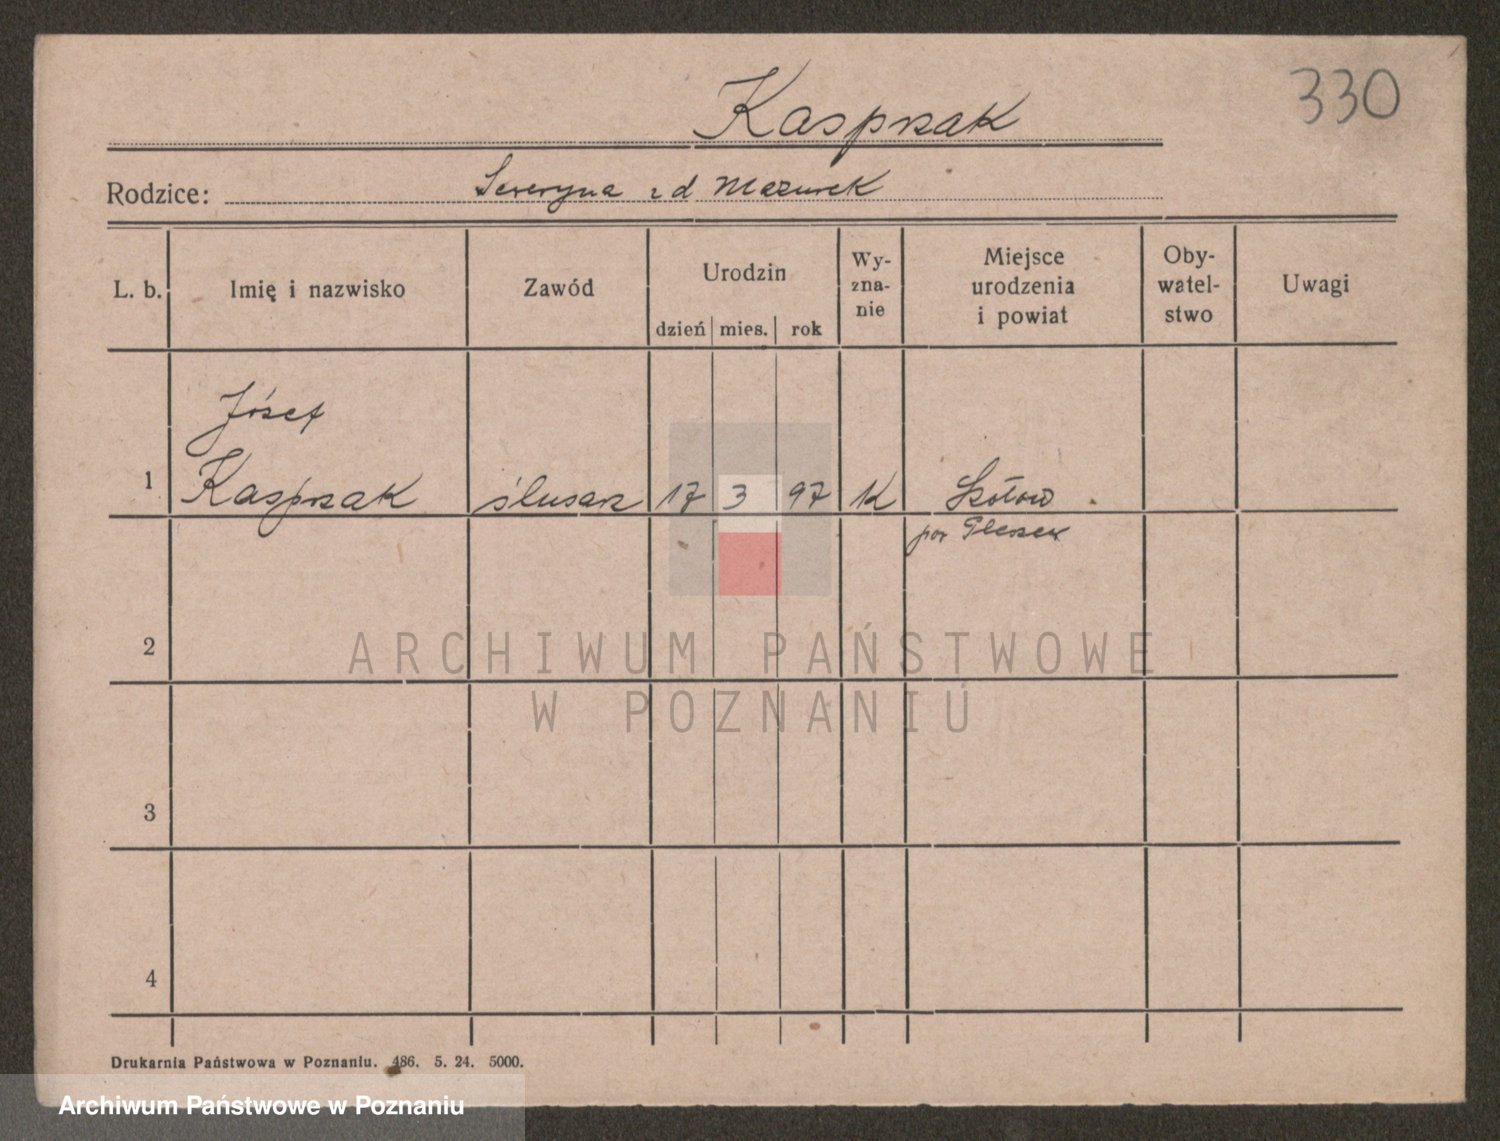 330
Kasprzak
Rodzice: Seweryna z d Mazurek
L. b. Imię i nazwisko Zawód Urodzin dzień mies. rok Wy-zna-nie Miejsce urodzenia i powiat Oby-watel-stwo Uwagi
Józef
1 Kasprzak ślusarz 17 3 97 K
pow Pleszew
2
3
4
ARCHIWUM PAŃSTWOWE
W POZNANIU
Drukarnia Państwowa w Poznaniu. 486. 5. 24. 5000.
Archiwum Państwowe w Poznaniu